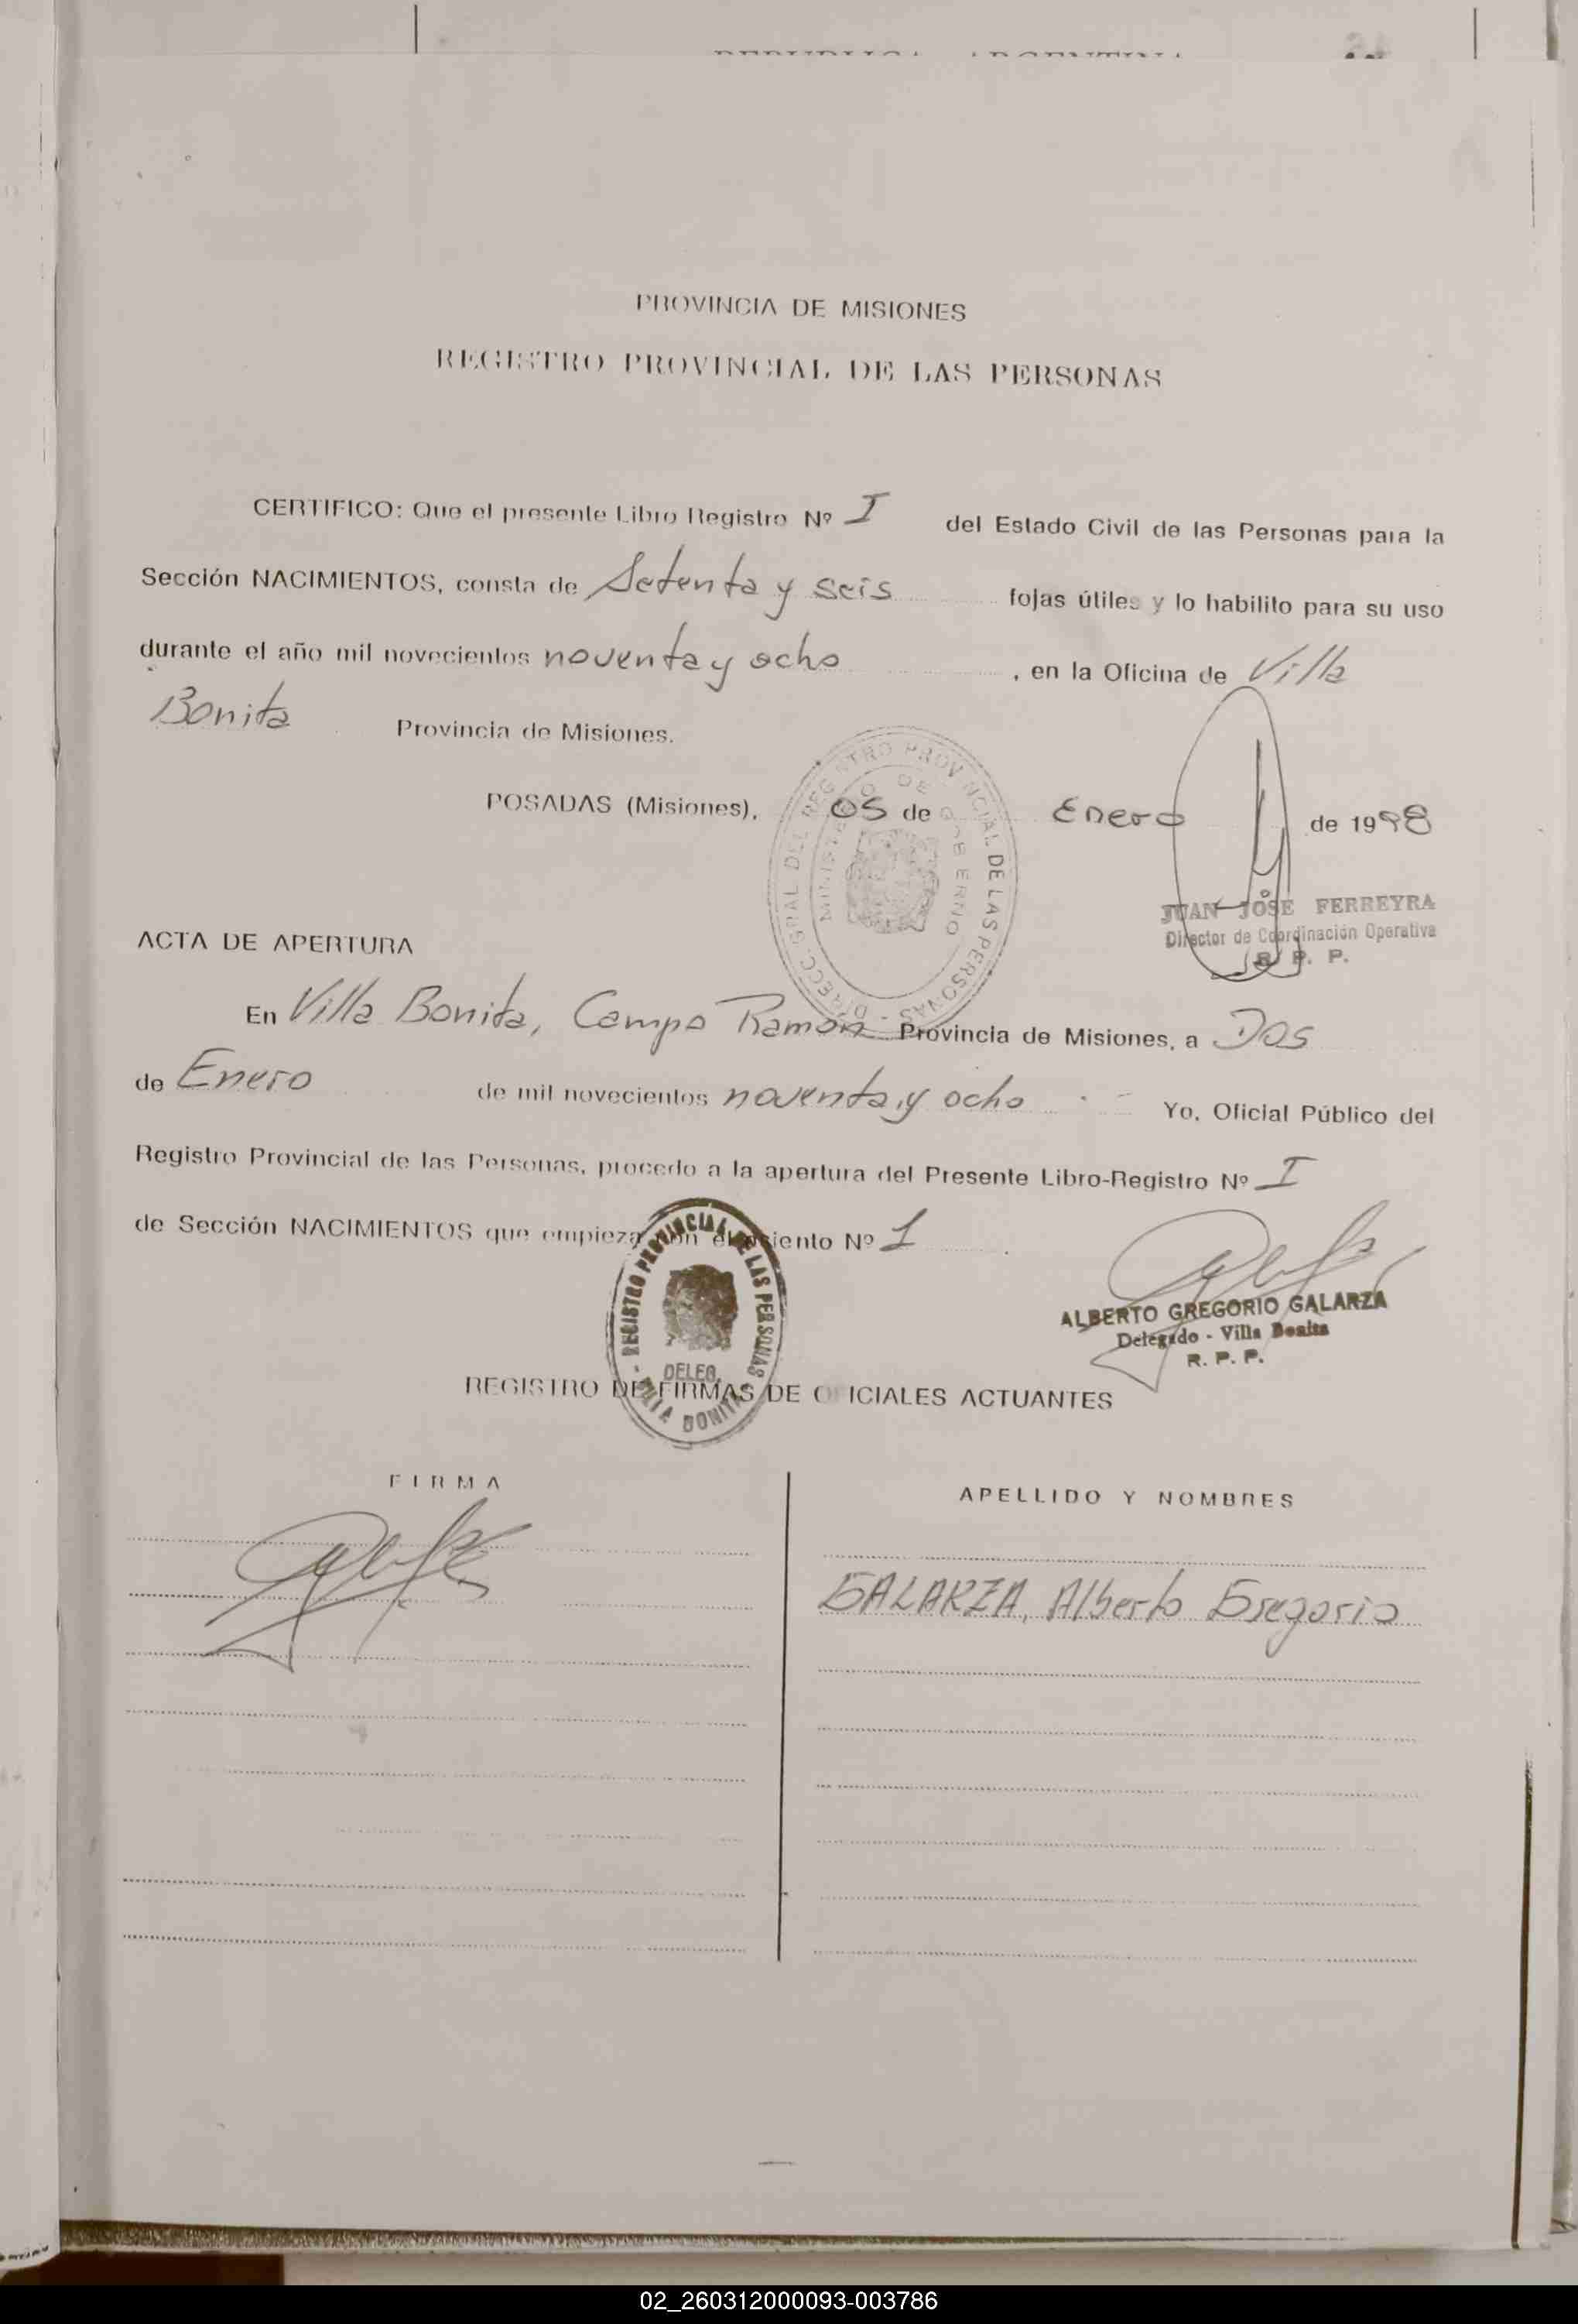 PROVINCIA DE MISIONES
REGISTRO PROVINCIAL DE LAS PERSONAS
CERTIFICO: Que el presente Libro Registro Nº I del Estado Civil de las Personas para la
Sección NACIMIENTOS, consta de Setenta y seis fojas útiles y lo habilito para su uso
durante el año mil novecientos noventa y ocho, en la Oficina de Villa
Bonita Provincia de Misiones.
POSADAS (Misiones), 05 de Enero de 1998
DIRECC. GRAL DEL REGISTRO PROVINCIAL DE LAS PERSONAS
MINISTERIO DE GOBIERNO
JUAN JOSE FERREYRA
Director de Coordinación Operativa
R. P. P.
ACTA DE APERTURA
En Villa Bonita, Campo Ramón Provincia de Misiones, a Dos
de Enero de mil novecientos noventa y ocho Yo, Oficial Público del
Registro Provincial de las Personas, procedo a la apertura del Presente Libro-Registro Nº I
de Sección NACIMIENTOS que empieza con el asiento Nº 1
REGISTRO PROVINCIAL DE LAS PERSONAS
DELEG.
VILLA BONITA
ALBERTO GREGORIO GALARZA
Delegado - Villa Bonita
R. P. P.
REGISTRO DE FIRMAS DE OFICIALES ACTUANTES
FIRMA APELLIDO Y NOMBRES
GALARZA, Alberto Gregorio
02_260312000093-003786